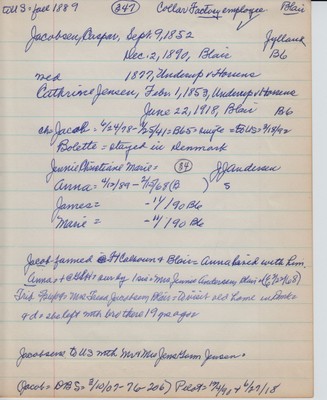 to US = fall 1889 (247) Collar Factory employee Blair
Jacobsen, Caspar, Sept. 9, 1852 Jylland
Dec. 2, 1890, Blair B6
med 1877, Underup v Horsens
Cathrine Jensen, Febr. 1, 1853, Underup v Horsens
June 22, 1918, Blair B6
ch = Jacob = 6/24/78 - 7/5/41 = B65 = single =
Bolette = stayed in Denmark
Jennie Christiane Marie = (34) J J Andersen
Anna = 4/12/89 - 2/10/68 (B ) S
James = - 4/ /90 B6
Marie = - 4/ /90 B6
Jacob farmed Ft Calhoun & Blair = Anna lived with him
Anna = sur by 1 sis = Mrs Jennie Andersen Blair =
Trib Sept = Mrs Trena Jacobsen Blair = to visit old home in Denk =
= she left with brother 19 yrs ago =
Jacobsens to US with Mr & Mrs Jens Jensen =
(Jacob = DBS = 3/10/07 - 76 - 206) Pilot =